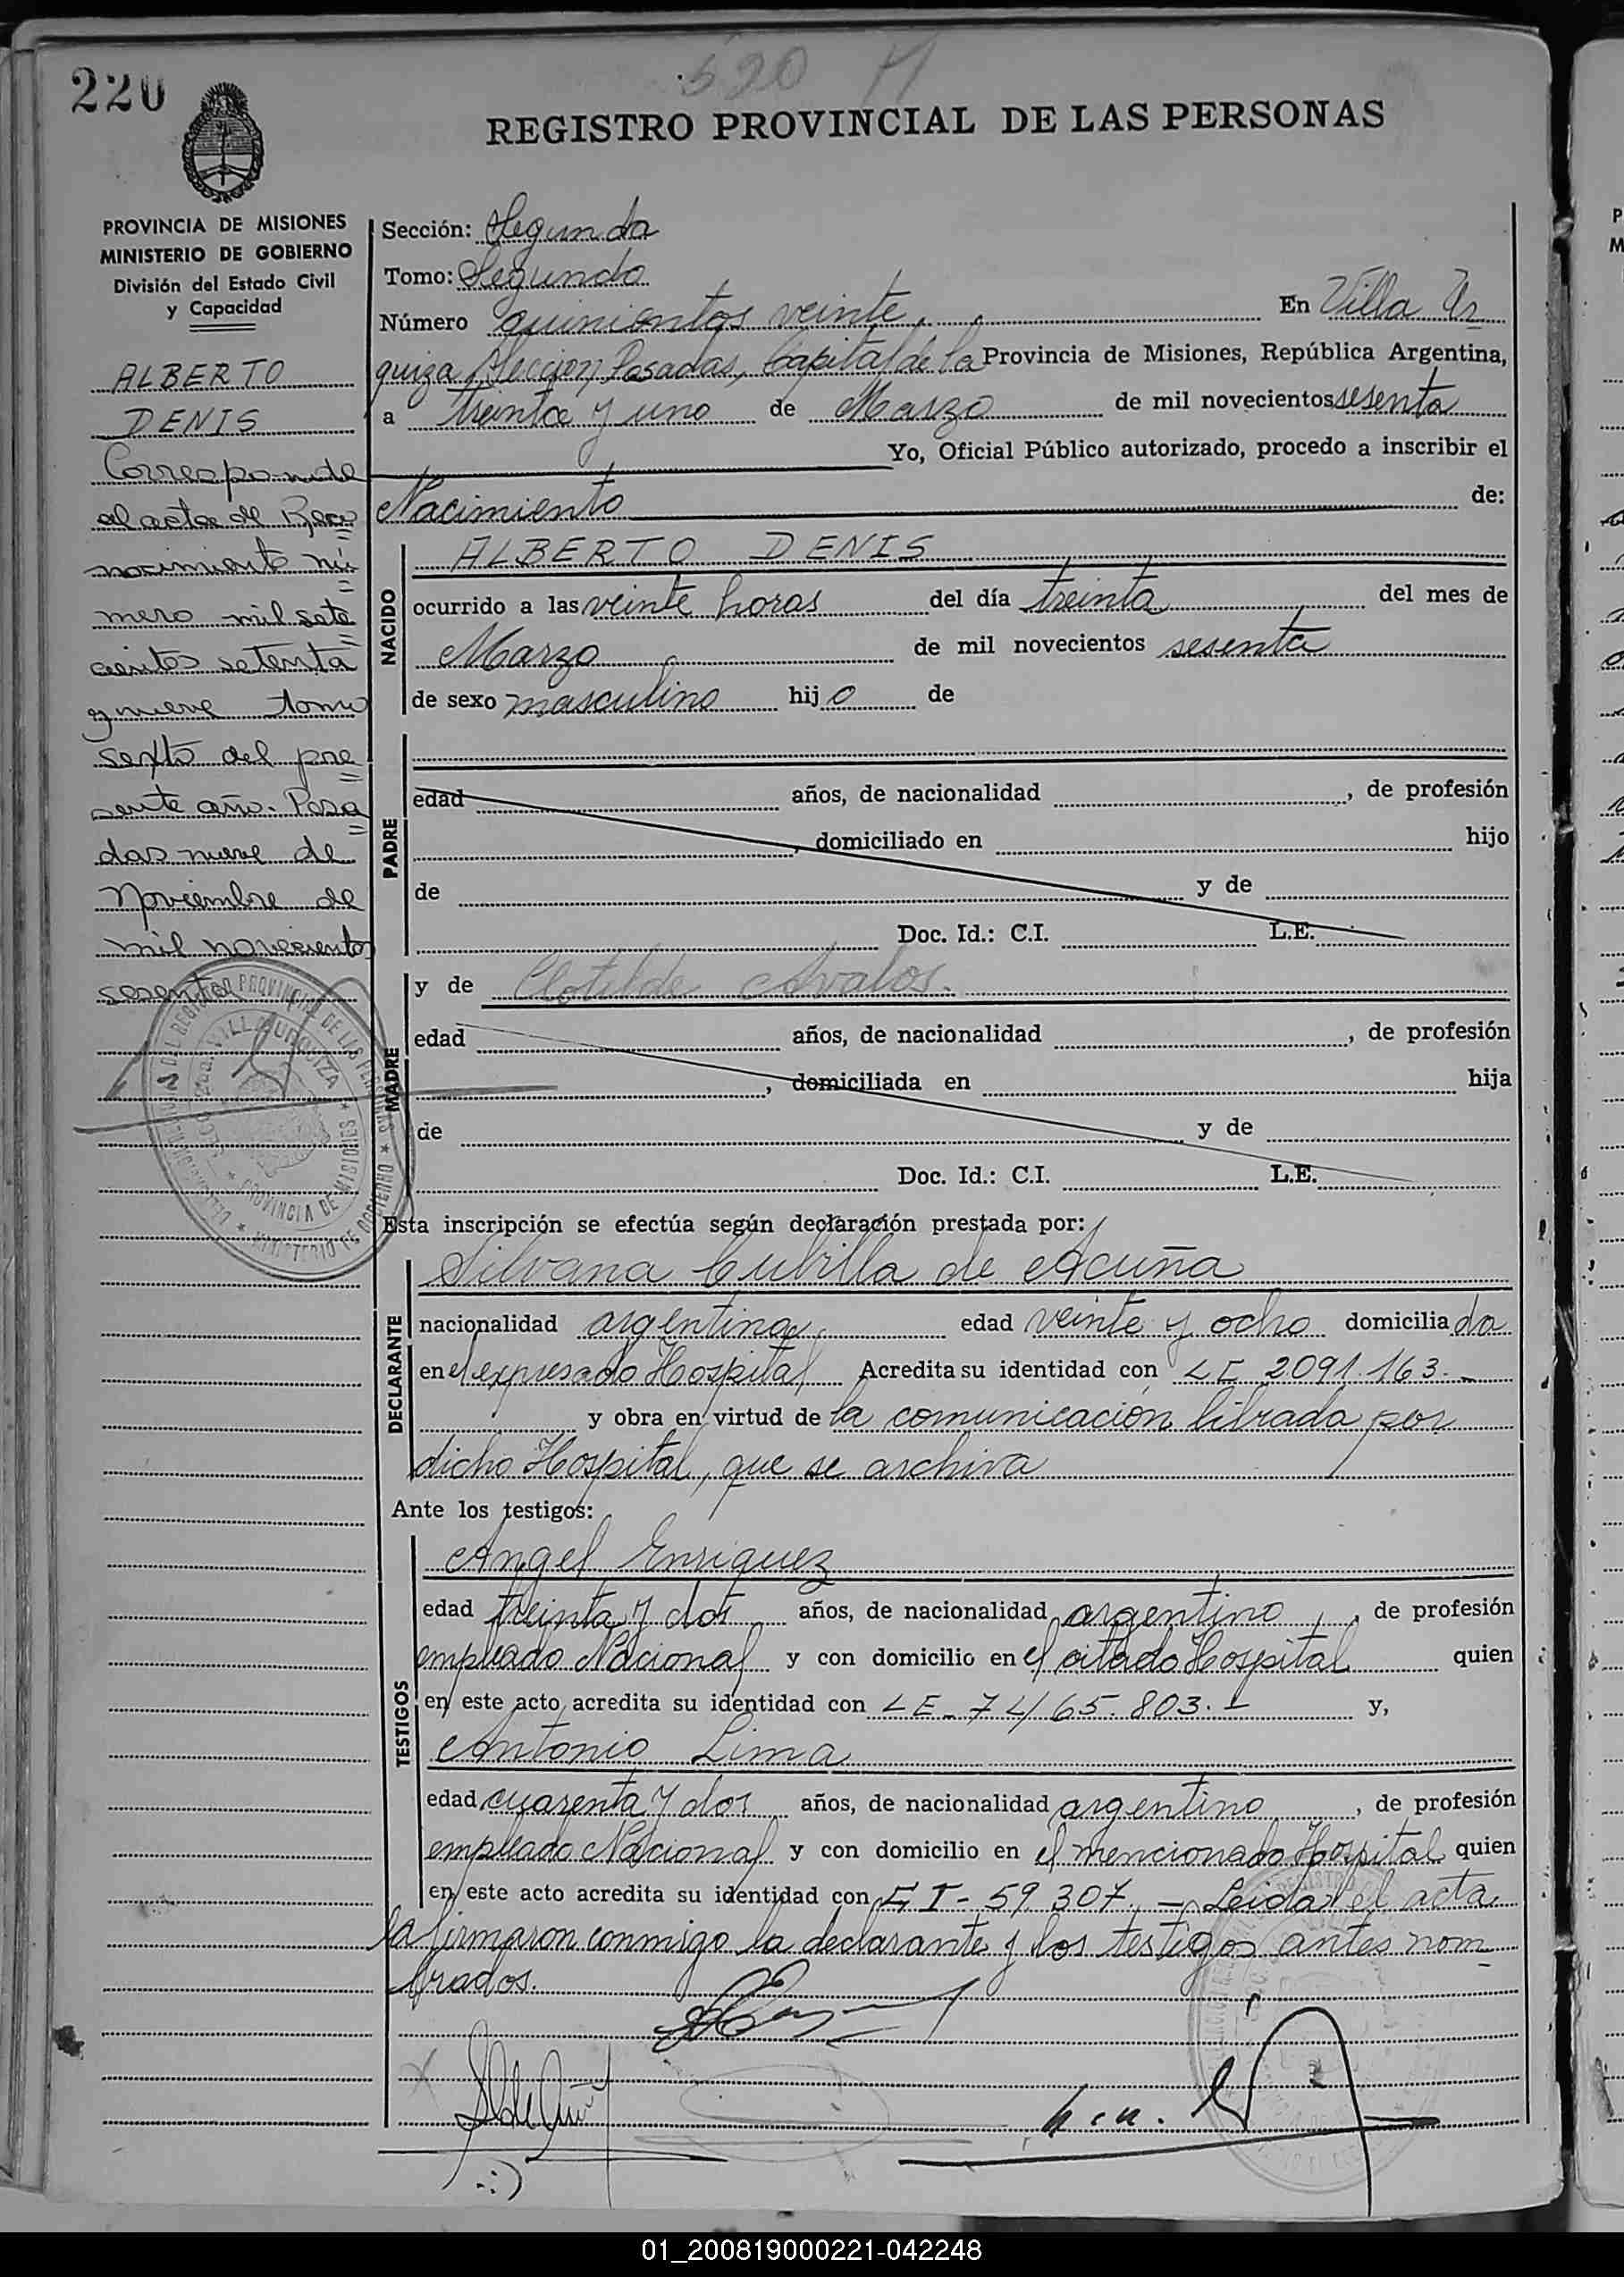 220
520
REGISTRO PROVINCIAL DE LAS PERSONAS
PROVINCIA DE MISIONES
MINISTERIO DE GOBIERNO
División del Estado Civil
y Capacidad
ALBERTO
DENIS
Corresponde
al acta de Reco
nocimiento nú
mero mil sete
cientos setenta
y nueve tomo
sexto del pre
sente año. Posa
das nueve de
Noviembre de
mil novecientos
sesenta
Sección: Segunda
Tomo: Segundo
Número quinientos veinte, En Villa Ur
quiza Seccion Posadas, Capital de la Provincia de Misiones, República Argentina,
a treinta y uno de Marzo de mil novecientos sesenta
Yo, Oficial Público autorizado, procedo a inscribir el
Nacimiento de:
NACIDO
ALBERTO DENIS
ocurrido a las veinte horas del día treinta del mes de
Marzo de mil novecientos sesenta
de sexo masculino hij o de
PADRE
edad años, de nacionalidad , de profesión
, domiciliado en hijo
de y de
Doc. Id.: C.I. L.E.
MADRE
y de Clotilde Avalos.
edad años, de nacionalidad , de profesión
, domiciliada en hija
de y de
Doc. Id.: C.I. L.E.
Esta inscripción se efectúa según declaración prestada por:
DECLARANTE
Silvana Cubilla de Acuña
nacionalidad argentina edad veinte y ocho domicilia da
en el expresado Hospital Acredita su identidad con LC 2091.163.-
y obra en virtud de la comunicación librada por
dicho Hospital, que se archiva
Ante los testigos:
TESTIGOS
Angel Enriquez
edad treinta y dos años, de nacionalidad argentino, de profesión
empleado Nacional y con domicilio en el citado Hospital quien
en este acto acredita su identidad con LE - 7465.803.- y,
Antonio Lima
edad cuarenta y dos años, de nacionalidad argentino, de profesión
empleado Nacional y con domicilio en el mencionado Hospital quien
en este acto acredita su identidad con CI - 59.307. - Leida el acta
la firmaron conmigo la declarante y los testigos antes nom
brados.
01_200819000221-042248